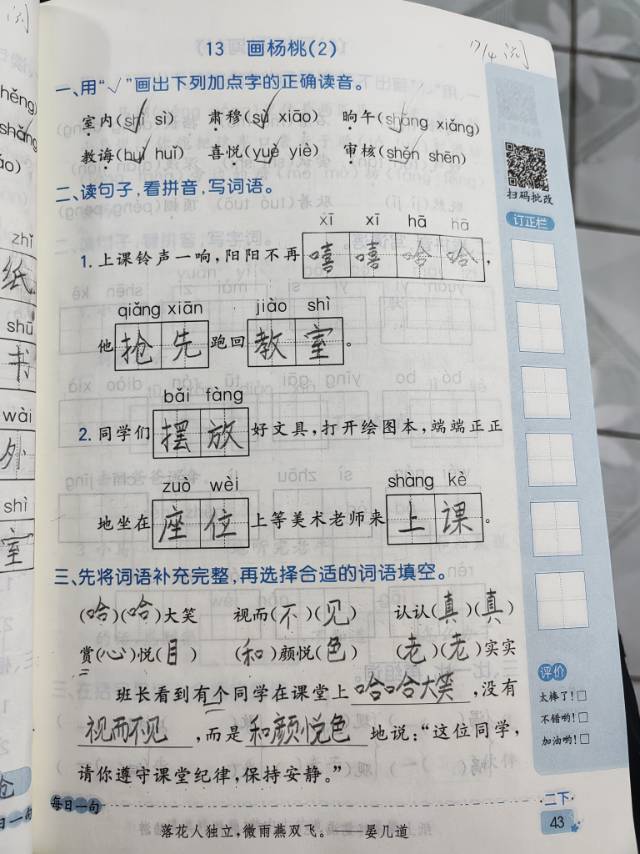 13 画杨桃(2)
17/4
一、用“√”画出下列加点字的正确读音。
室内(shì sì) 肃穆(sù xiāo) 晌午(shǎng xiǎng)
教诲(huì huǐ) 喜悦(yuè yiè) 审核(shěn shēn)
扫码批改
订正栏
二、读句子，看拼音，写词语。
xī xī hā hā
1. 上课铃声一响，阳阳不再嘻嘻哈哈，
qiǎng xiān jiào shì
他抢先跑回教室。
bǎi fàng
2. 同学们摆放好文具，打开绘图本，端端正正
zuò wèi shàng kè
地坐在座位上等美术老师来上课。
三、先将词语补充完整，再选择合适的词语填空。
(哈)(哈)大笑 视而(不)(见) 认认(真)(真)
赏(心)悦(目) (和)颜悦(色) (老)(老)实实
班长看到有个同学在课堂上哈哈大笑，没有
视而不见，而是和颜悦色地说：“这位同学，
请你遵守课堂纪律，保持安静。”
评价
太棒了！□
不错哟！□
加油哟！□
每日一句
落花人独立，微雨燕双飞。——晏几道
二下
43
zhǐ
纸
shū
书
wài
外
shì
室